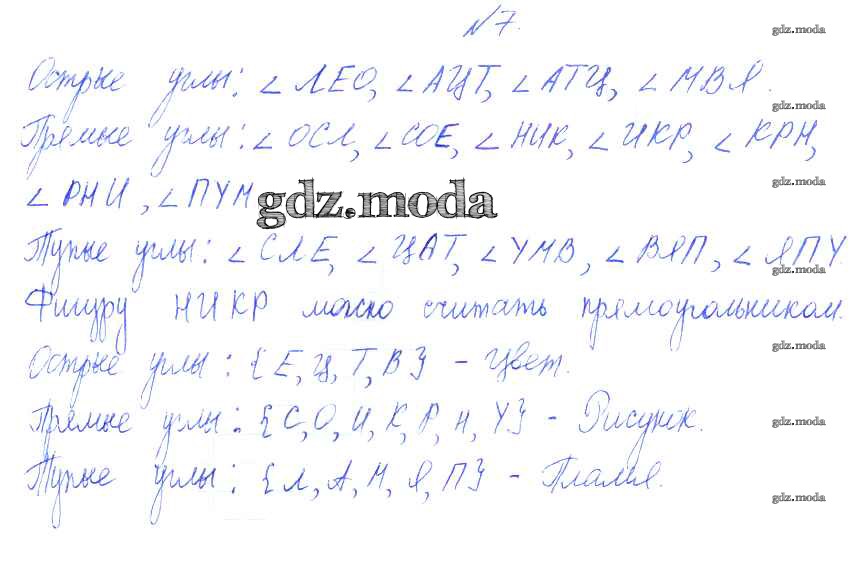 №7.
gdz.moda
Острые углы: ∠ЛЕО, ∠АЦТ, ∠АТЦ, ∠МВЯ.
gdz.moda
Прямые углы: ∠ОСЛ, ∠СОЕ, ∠НИК, ∠ИКР, ∠КРН,
∠РНИ, ∠ПУМ
gdz.moda
gdz.moda
Тупые углы: ∠СЛЕ, ∠ЦАТ, ∠УМВ, ∠ВЯП, ∠ЯПУ.
gdz.moda
Фигуру НИКР можно считать прямоугольником.
gdz.moda
Острые углы: {Е, Ц, Т, В} - Цвет.
Прямые углы: {С, О, И, К, Р, Н, У} - Рисунок.
gdz.moda
Тупые углы: {Л, А, М, Я, П} - Пламя.
gdz.moda